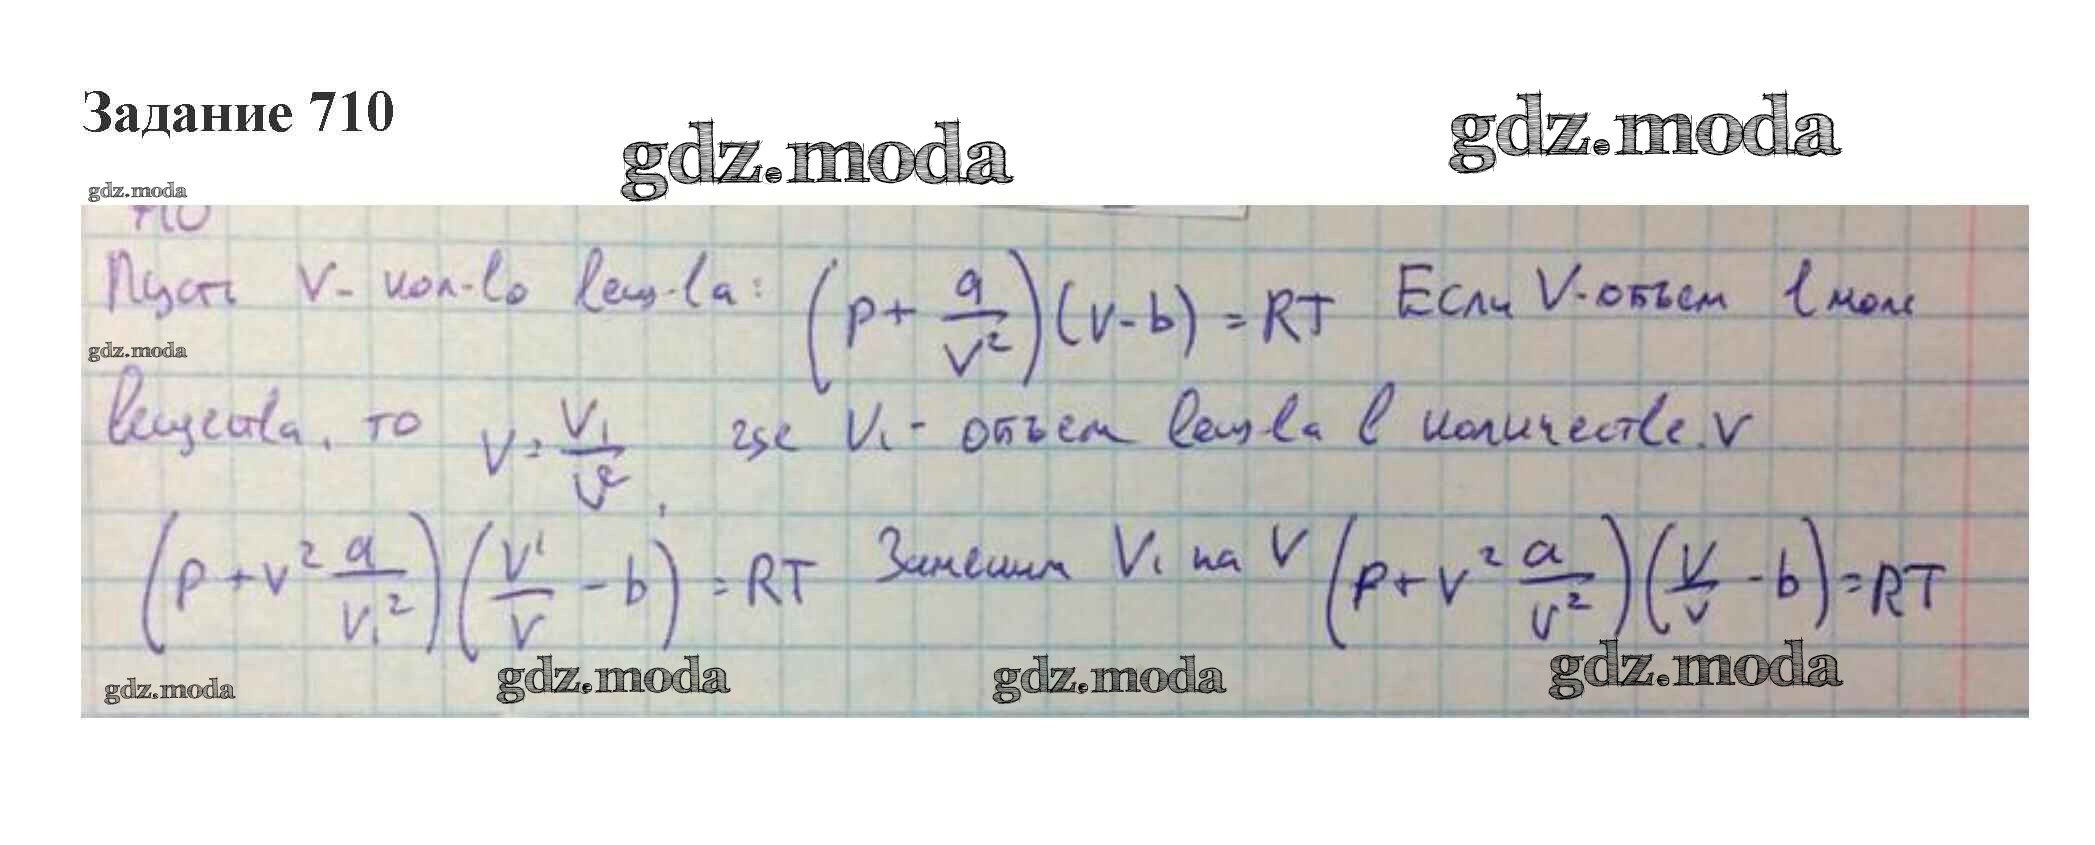 Задание 710
gdz.moda
gdz.moda
gdz.moda
710
Пусть V - кол-во вещ-ва: (p + a/V²)(V - b) = RT Если V - объем 1 моля
gdz.moda
вещества, то V = V₁/ν², где V₁ - объем вещ-ва в количестве ν
(p + ν² a/V₁²)(V¹/ν - b) = RT Заменим V₁ на V (p + ν² a/V²)(V/ν - b) = RT
gdz.moda
gdz.moda
gdz.moda
gdz.moda